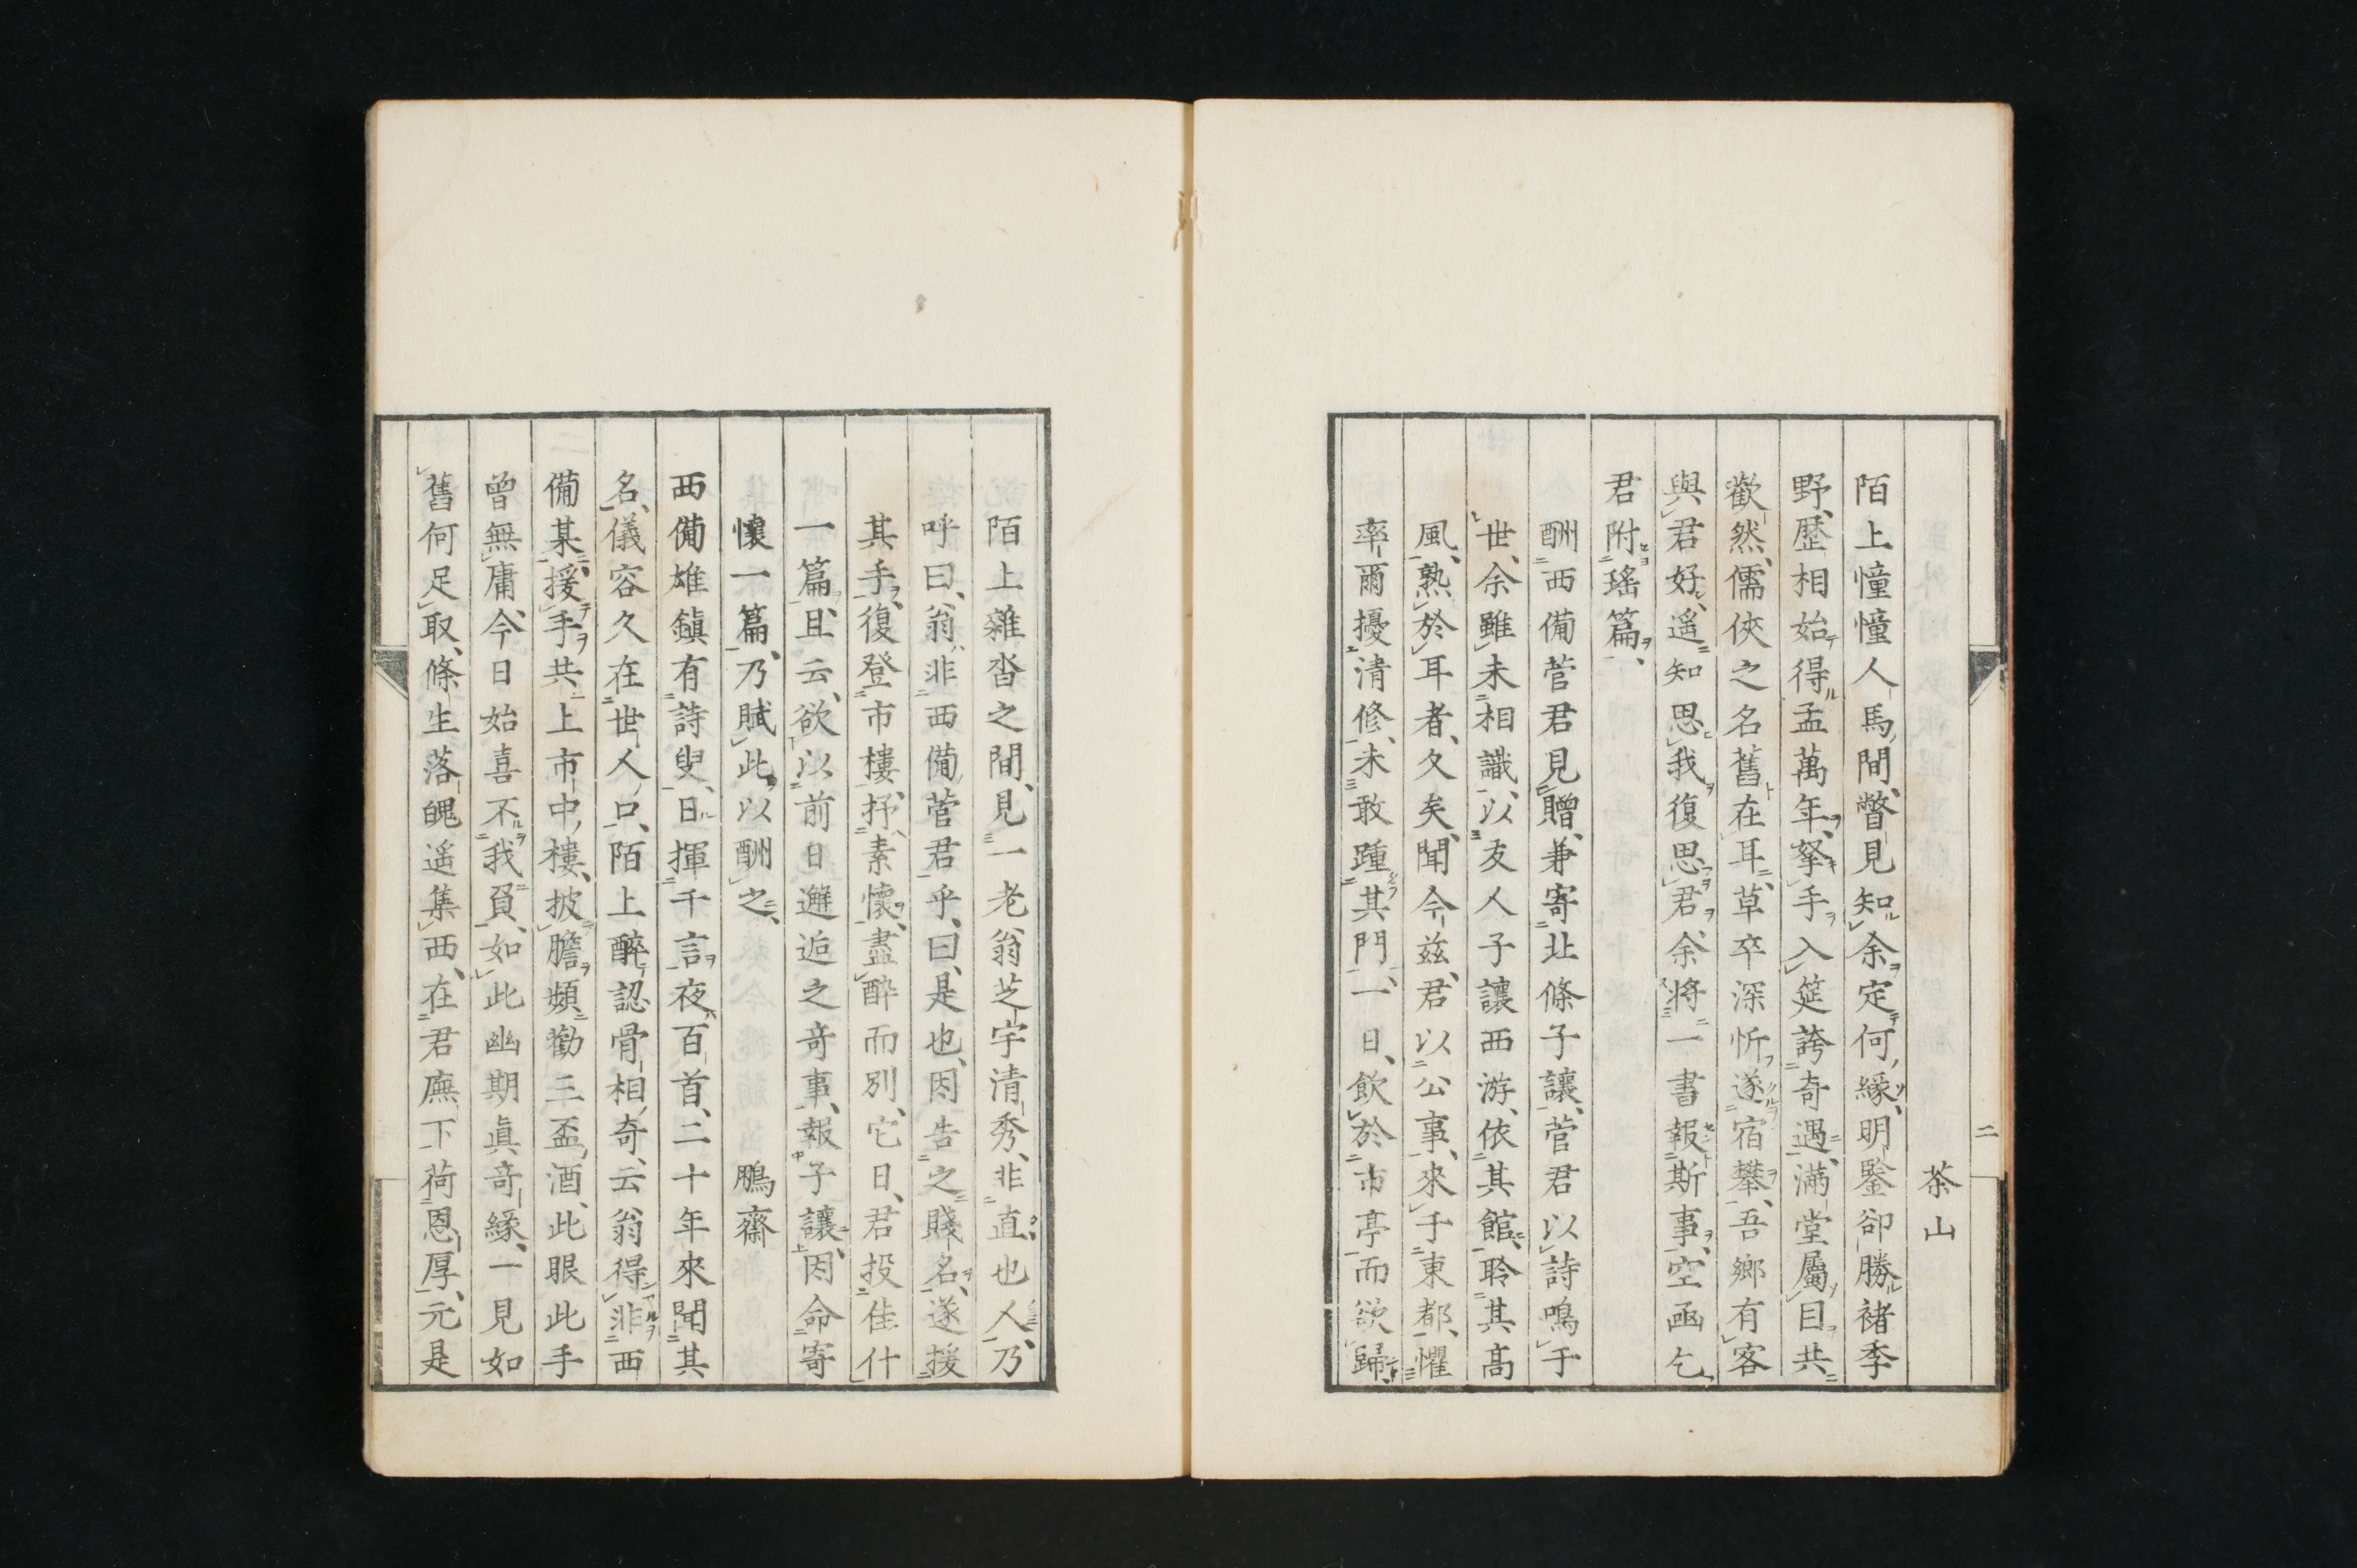 二
茶山
陌上憧憧人馬間瞥見知余定何緣明鑒卻勝褚季
野歷相始得孟萬年拏手入筵誇奇遇滿堂屬目共
歡然儒俠之名舊在耳草卒深忻遂宿攀吾鄉有客
與君好遙知思我復思君余將一書報斯事空函乞
君附瑤篇
酬西備菅君見贈兼寄北條子讓菅君以詩鳴于
世余雖未相識以友人子讓西游依其館聆其高
風熟於耳者久矣聞今茲君以公事來于東都懼
率爾擾清修未敢踵其門一日飲於市亭而欲歸
陌上雜沓之間見一老翁芝宇清秀非直也人乃
呼曰翁非西備菅君乎曰是也因告之賤名遂援
其手復登市樓抒素懷盡醉而別它日君投佳什
一篇且云欲以前日邂逅之奇事報子讓因命寄
懷一篇乃賦此以酬之　鵬齋
西備雄鎮有詩叟日揮千言夜百首二十年來聞其
名儀容久在世人口陌上醉認骨相奇云翁得非西
備某援手共上市中樓披膽頻勸三盃酒此眼此手
曾無庸今日始喜不我負如此幽期真奇緣一見如
舊何足取條生落魄遙集西在君廡下荷恩厚元是